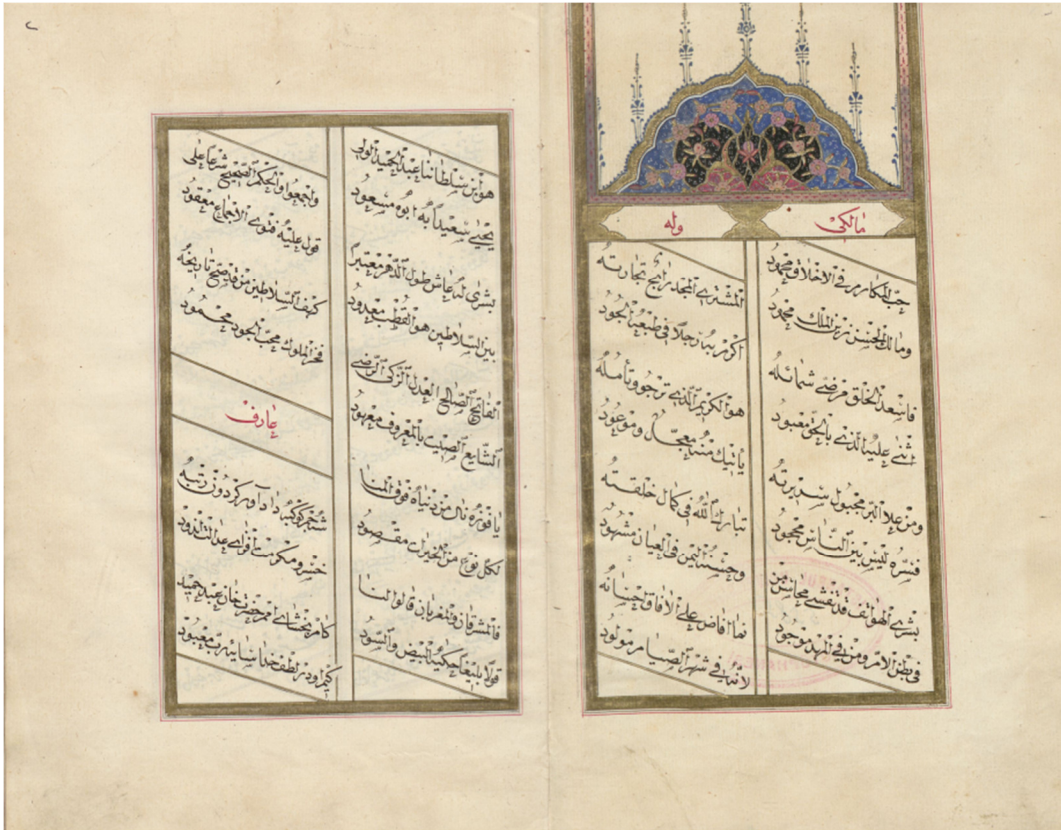 مالكى
وله
حب المكارم في الاخلاق محمود
ومالك الحسن زين الملك محمود
فاسعد الخلق مرضي شمائله
اثنى عليه الذي بالحق معبود
ومن علا البر مجبول سريرته
فسره ليس بين الناس مجحود
بشرى الهواتف قد تفشي محاسن من
في بطن الام ومن في المهد موجود
المشتري المجد رابح تجارته
اكرم به رجلا في طبعه الجود
هو الكريم الذي ترجو وتأمله
يأتيك منه معجل وموعود
تبارك الله في كمال خلقته
وحسنه اليمن في العيان مشهود
نعما افاض على الافاق احسانه
لانه في شهر الصيام مولود
هو ابن سلطاننا عبد الحميد الولد
يحيي سعيدا به ابوه مسعود
بشرى له عاش طول الدهر معتبرا
بين السلاطين هو القطب معدود
الفاتح الصالح العدل الزكي الرضي
الشايع الصيت بالمعروف معهود
يا فوزه نال من دنياه فوق المنا
لكل نوع من الخيرات مقصود
فالمشرقان ومغربان قالوا لنا
قولا بليغا حكته البيض والسود
واجمعوا والحكم الصحيح شرعا على
قول عليه فتوى الاجماع معقود
كهف السلاطين من قد صح تاريخه
فخر الملوك محب الجود محمود
عارف
كوكبه دادآور كردون رتبه
خسرو مكرمت افزاى عدالت اندود
كامبخشاى امم حضرت خان عبد حميد
كيم اودر لطف خدا سايه رب معبود